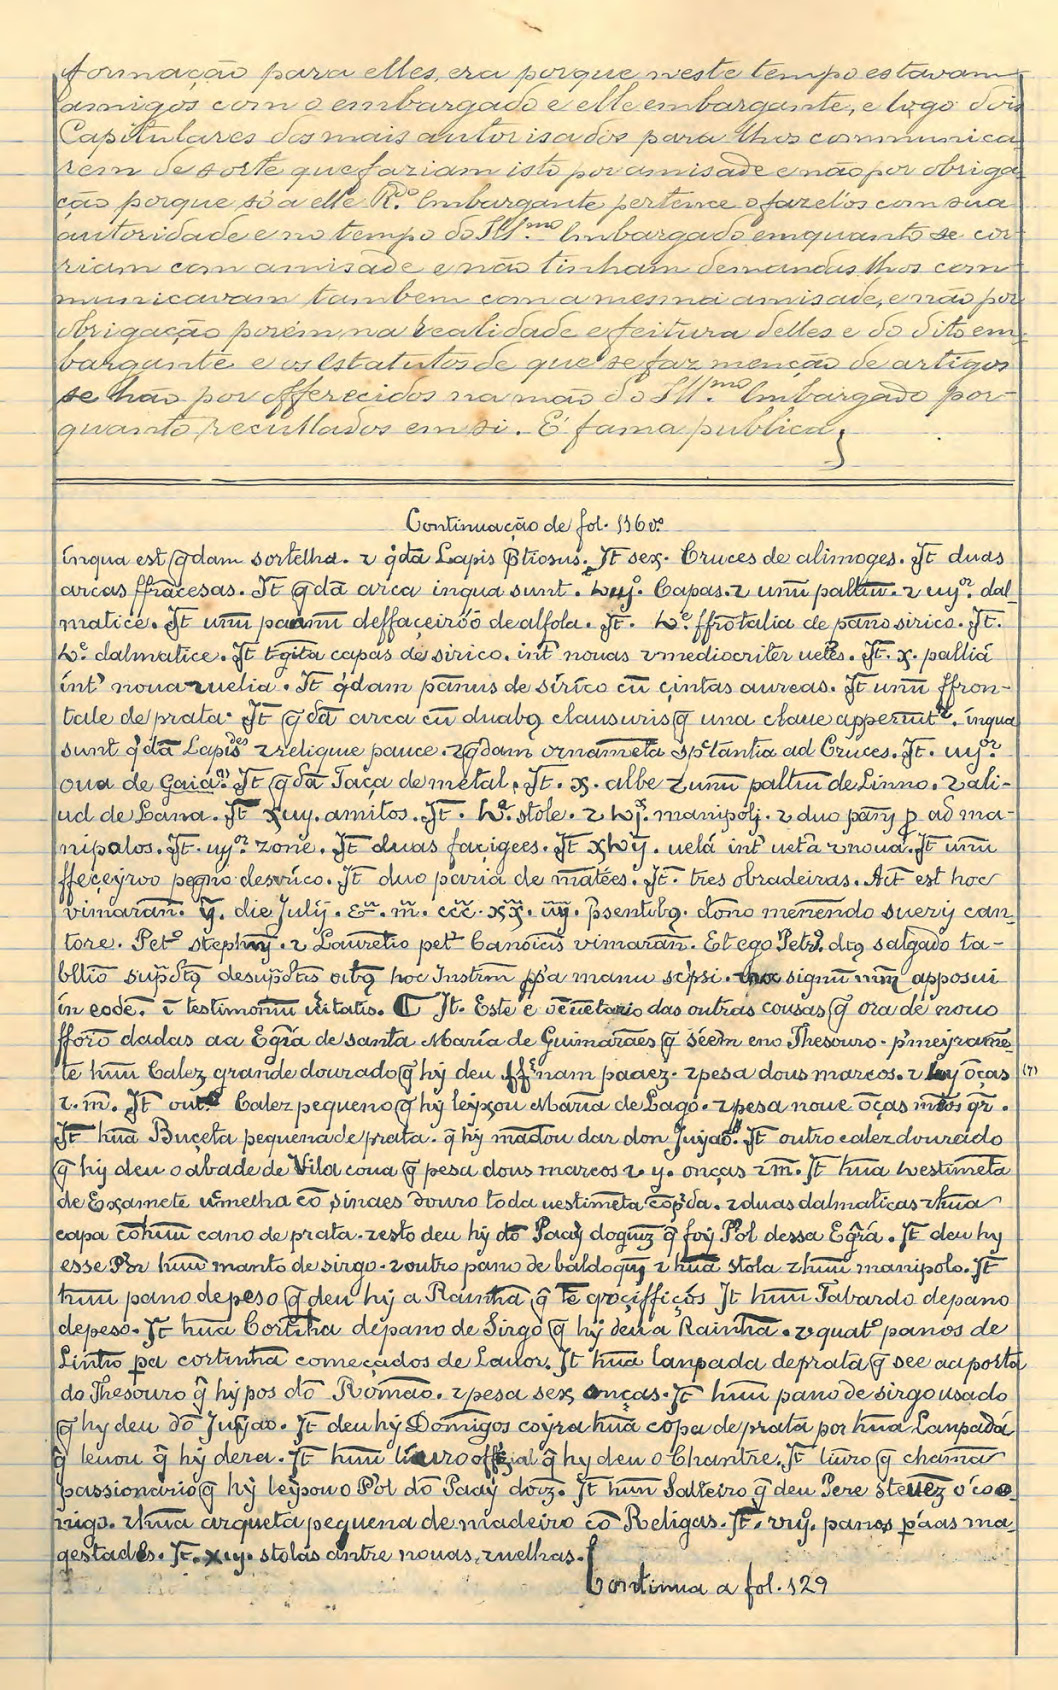 formação para elles, era porque neste tempo estavam
amigos com o embargado e elle embargante, e logo dois
Capitulares dos mais autorisados para lhos communica
rem de sorte que faziam isto por amisade e não por obriga-
ção porque só a elle R.do Embargante pertence o fazelos com sua
autoridade e no tempo do Ill.mo Embargado emquanto se cor-
riam com amisade e não tinham demandas lhos com-
municavam tambem com a mesma amisade, e não por
obrigação porém na realidade e feitura delles e do dito em-
bargante e os Estatutos de que se faz menção de artigos
se hão por offerecidos na mão do Ill.mo Embargado por-
quanto, recullados em si. É fama publica
Continuação de fol. 136 v.o
ínqua est q̃dam sortelha. ꝛ q̇dã Lapis p̃tiosus. Jt̃ sex. Cruces de alimoges. Jt̃ duas
arcas ffrãcesas. Jt̃ q̃dã arca inqua sunt. Capas. ꝛ unũ palliũ. ꝛ uij.or dal-
matice. Jt̃ unũ pannũ deffaçeiróó de alfola. Jt̃. ffrõtalia de pãno sirico. Jt̃.
dalmatice. Jt̃ capas de sirico. int̓ nouas ꝛ mediocriter uet̃es. Jt̃. x. palliá
ínt̓ noua ꝛ uelia. Jt̃ q̇dam pãnus de síríco cũ çintas aureas. Jt̃ unũ ffron-
tale de prata. Jt̃ q̃dã arca cũ duabꝫ clausuris q̃ una claue apperiunt.r. ínqua
sunt q̇dã Lapides ꝛ reliquie pauce. ꝛ q̃dam ornamẽta sp̃ctantia ad Cruces. Jt̃. uij.or
oua de Gaiá. Jt̃ q̃dã Taça de metal. Jt̃. x. albe ꝛ unũ palliũ de Linno. ꝛ ali-
ud de Lana. Jt̃ xuij. amitos. Jt̃. stole. ꝛ manipolj. ꝛ duo pãnj p̱ ad ma-
nipolos. Jt̃. uij.or zone. Jt̃ duas façigees. Jt̃ uelá int̓ uet̃a ꝛ noua. Jt̃ unũ
ffeçeyroo pegno desirico. Jt̃ duo paria de mãtées. Jt̃. tres obradeiras. Act̃ est hoc
vimarañ. die Julij. p̃sentibꝫ. dõno menẽndo suerij can-
tore. Pet.o stephñj. ꝛ Laurẽtio pet.i Canõicis vimarañ. Et ego Petrꝰ. dt̃ꝫ salgado ta-
bllio sup̃dt̃ꝫ desup̃dt̃is oibꝫ hoc Instrm̃ p̱p̓a manu sc̓psi. signũ mm̃ apposui
in eodẽ. ĩ testimoniũ ũitatis. ¶ Jt̃. Este é das outras cousas q̃ ora de nouo
fforõ dadas aa Eg̃ia de santa María de Guimarães q̃ séẽm eno Thesouro. p̓meyramẽ-
te hũu Calez grande dourado q̃ hy deu paaez. ꝛ pesa dous marcos. ꝛ õças (7)
ꝛ. m̃. Jt̃ out.o Calez pequeno q̃ hy leyxou Maria de Lago. ꝛ pesa noue õças
Jt̃ hũa Buçeta pequena de prata. q̃ hy mãdou dar don Juyão. Jt̃ outro calez dourado
q̃ hy deu o abade de Vila coua q̃ pesa dous marcos ꝛ y. onças ꝛ m̃. Jt̃ hũa uestimẽta
de Exametẽ u̓melha cõ sinaes douro toda uestimẽta cõp̓da. ꝛ duas dalmaticas ꝛ hũa
capa cõ hũu cano de prata. ꝛ esto deu hy dõ Paay q̃ foy P̓ol dessa Eg̃ia. Jt̃ deu hy
esse P̓or hũu manto de sirgo. ꝛ outro pano de baldoquj ꝛ hũa stola ꝛ hũu manipolo. Jt̃
hũu pano depeso q̃ deu hy a Raínha q̃ tẽ croçiffiçós Jt̃ hũu Tabardo depano
depeso. Jt̃ hũa Cortiha depano de Sirgo q̃ hy deu a Rainha. ꝛ quat.o panos de
Línho p̱a cortinha começados de Lauor. Jt̃ hũa lanpada deprata q̃ see aaporta
do Thesouro q̃ hy pos dõ Romão. ꝛ pesa sex onças. Jt̃ hũu pano de sirgo usado
q̃ hy deu dõ Juyão. Jt̃ deu hy Domígos coyra hũa copa de prata por hũa Lanpadá
q̃ leuou q̃ hy dera. Jt̃ hũu líuro offiçial q̃ hy deu o Chantre. Jt̃ líuro q̃ chama
passionario q̃ hy leyxou o P̓ol dõ Paay Jt̃ hũu Salteiro q̃ deu Pere steuez o coo-
nigo. ꝛ hũa arqueta pequena de madeiro cõ Religas. Jt̃. panos p̱aas ma-
gestades. Jt̃. xiy. stolas antre nouas, ꝛ uelhas.
Continua a fol. 129